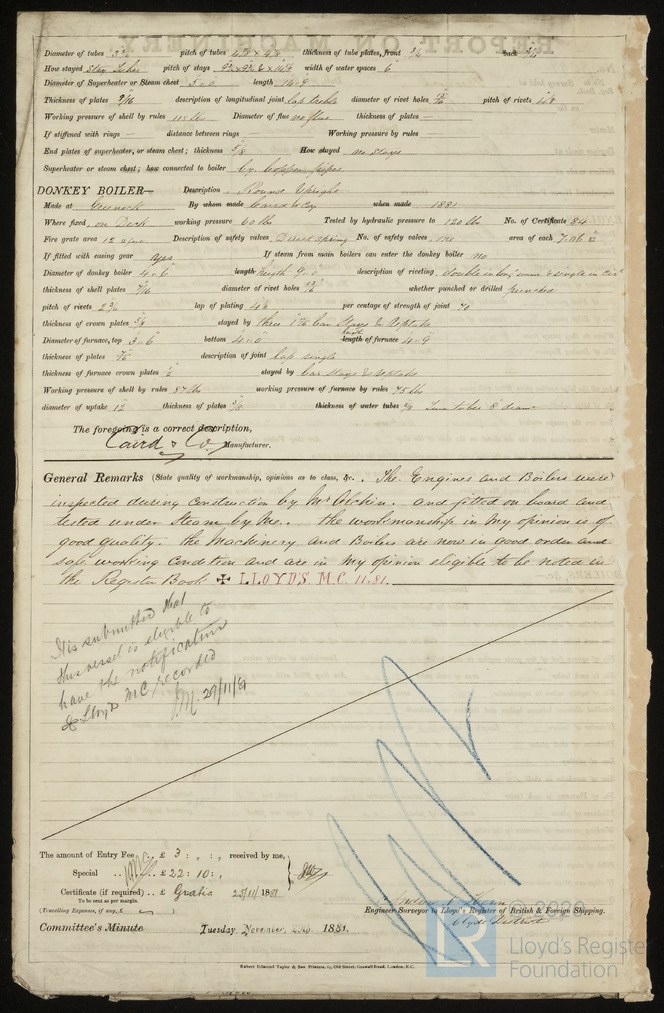 Diameter of tubes 3¼" pitch of tubes 4⅜ x 4⅜ thickness of tube plates, front ¾" back
How stayed Stay Tubes pitch of stays width of water spaces 6"
Diameter of Superheater or Steam chest 5-0 length 14-9
Thickness of plates 9/16 description of longitudinal joint lap treble diameter of rivet holes 15/16 pitch of rivets 4⅜
Working pressure of shell by rules lbs Diameter of flue no flue thickness of plates —
If stiffened with rings — distance between rings — Working pressure by rules —
End plates of superheater, or steam chest; thickness 5/8 How stayed no stays
Superheater or steam chest; how connected to boiler by Copper pipes
DONKEY BOILER— Description Round Upright
Made at Greenock By whom made Caird & Coy when made 1881
Where fixed on Deck working pressure 60 lbs Tested by hydraulic pressure to 120 lbs No. of Certificate 84
Fire grate area 12 Description of safety valves Direct Spring No. of safety valves area of each 7.06
If fitted with easing gear yes If steam from main boilers can enter the donkey boiler no
Diameter of donkey boiler 4-6 length height 9-0 description of riveting double in long seams & single in Circ
thickness of shell plates 7/16 diameter of rivet holes 13/16 whether punched or drilled punched
pitch of rivets 2¾ lap of plating 4⅛ per centage of strength of joint 70
thickness of crown plates 5/8 stayed by three bar Stays & Uptake
Diameter of furnace, top 3-6 bottom 4-0 length height of furnace 4-9
thickness of plates 7/16 description of joint lap single
thickness of furnace crown plates ½ stayed by bar stays & Uptake
Working pressure of shell by rules 87 lbs working pressure of furnace by rules 75 lbs
diameter of uptake 12" thickness of plates thickness of water tubes 3/8 Two tubes 8" diam
The foregoing is a correct description,
Caird & Co. Manufacturer.
General Remarks (State quality of workmanship, opinions as to class, &c. The Engines and Boilers were
inspected during Construction by Mr and fitted on board and
tested under Steam by Me. the workmanship in My opinion is of
good quality. the Machinery and Boilers are now in good order and
safe working Condition and are in My opinion eligible to be noted in
the Register Book ✠ LLOYD'S. M.C. 11.81.
It is submitted that
this vessel is eligible to
have the notification
✠ Lloyds MC recorded
29/11/81
The amount of Entry Fee .. £ 3 : „ : „ received by me,
Special .. £ 22 : 10 : „
Certificate (if required) .. £ Gratis 25/11/1881
To be sent as per margin.
(Travelling Expenses, if any, £ )
Engineer Surveyor to Lloyd's Register of British & Foreign Shipping.
Clyde District
Committee's Minute Tuesday, November, 29th, 1881.
Robert Edmund Taylor & Son, Printers, 19, Old Street, Goswell Road, London, E.C.
© 2020
LR
Lloyd's Register
Foundation